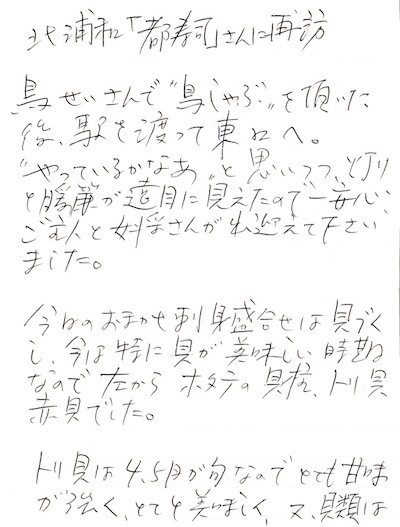 北浦和「都寿司」さんに再訪
鳥せいさんで“鳥しゃぶ”を頂いた
後、駅を渡って東口へ。
“やっているかなあ”と思いつつ、灯り
と暖簾が遠目に見えたので一安心、
ご主人と女将さんが出迎えて下さい
ました。
今日のおまかせ刺身盛合せは貝づく
し、今は特に貝が美味しい時期
なので左からホタテの貝柱、トリ貝
赤貝でした。
トリ貝は4,5月が旬なのでとても甘味
が強く、とても美味しく、又、貝類は